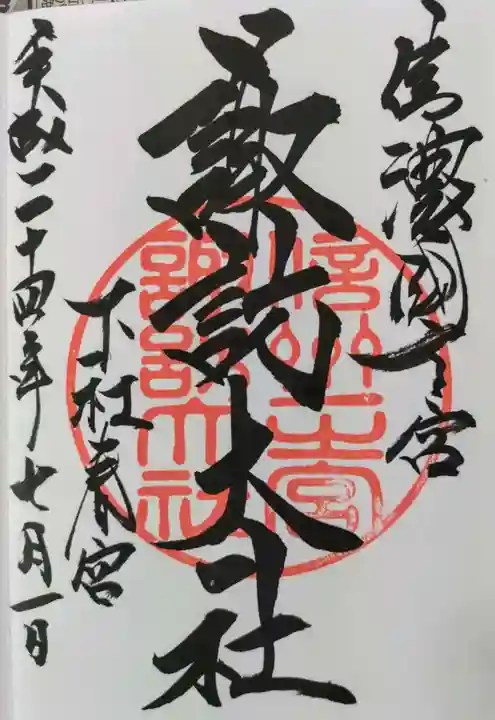 信濃國一之宮
諏訪大社
下社春宮
平成二十四年七月一日
信州一之宮
諏訪大社